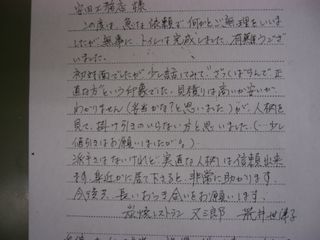 安田工務店 様
この度は、急な依頼で何かとご無理をいいま
したが無事に トイレは完成しました。有難うござ
いました。
初対面でしたが少し話してみて"ざっくばらんで正
直な方"という印象でした。見積りは高いか安いか
わかりません(若干かな?と思いました)が、人柄を
見て、掛け引きのいらない方と思いました(…少し
値引きはお願いしましたがね)
派手さはないけれど実直な人柄は信頼出来
ます。身近かに居て下さると非常に助かります。
今後共、長いおつき合いをお願いします。
炭焼レストラン 又三郎 荒井世津子